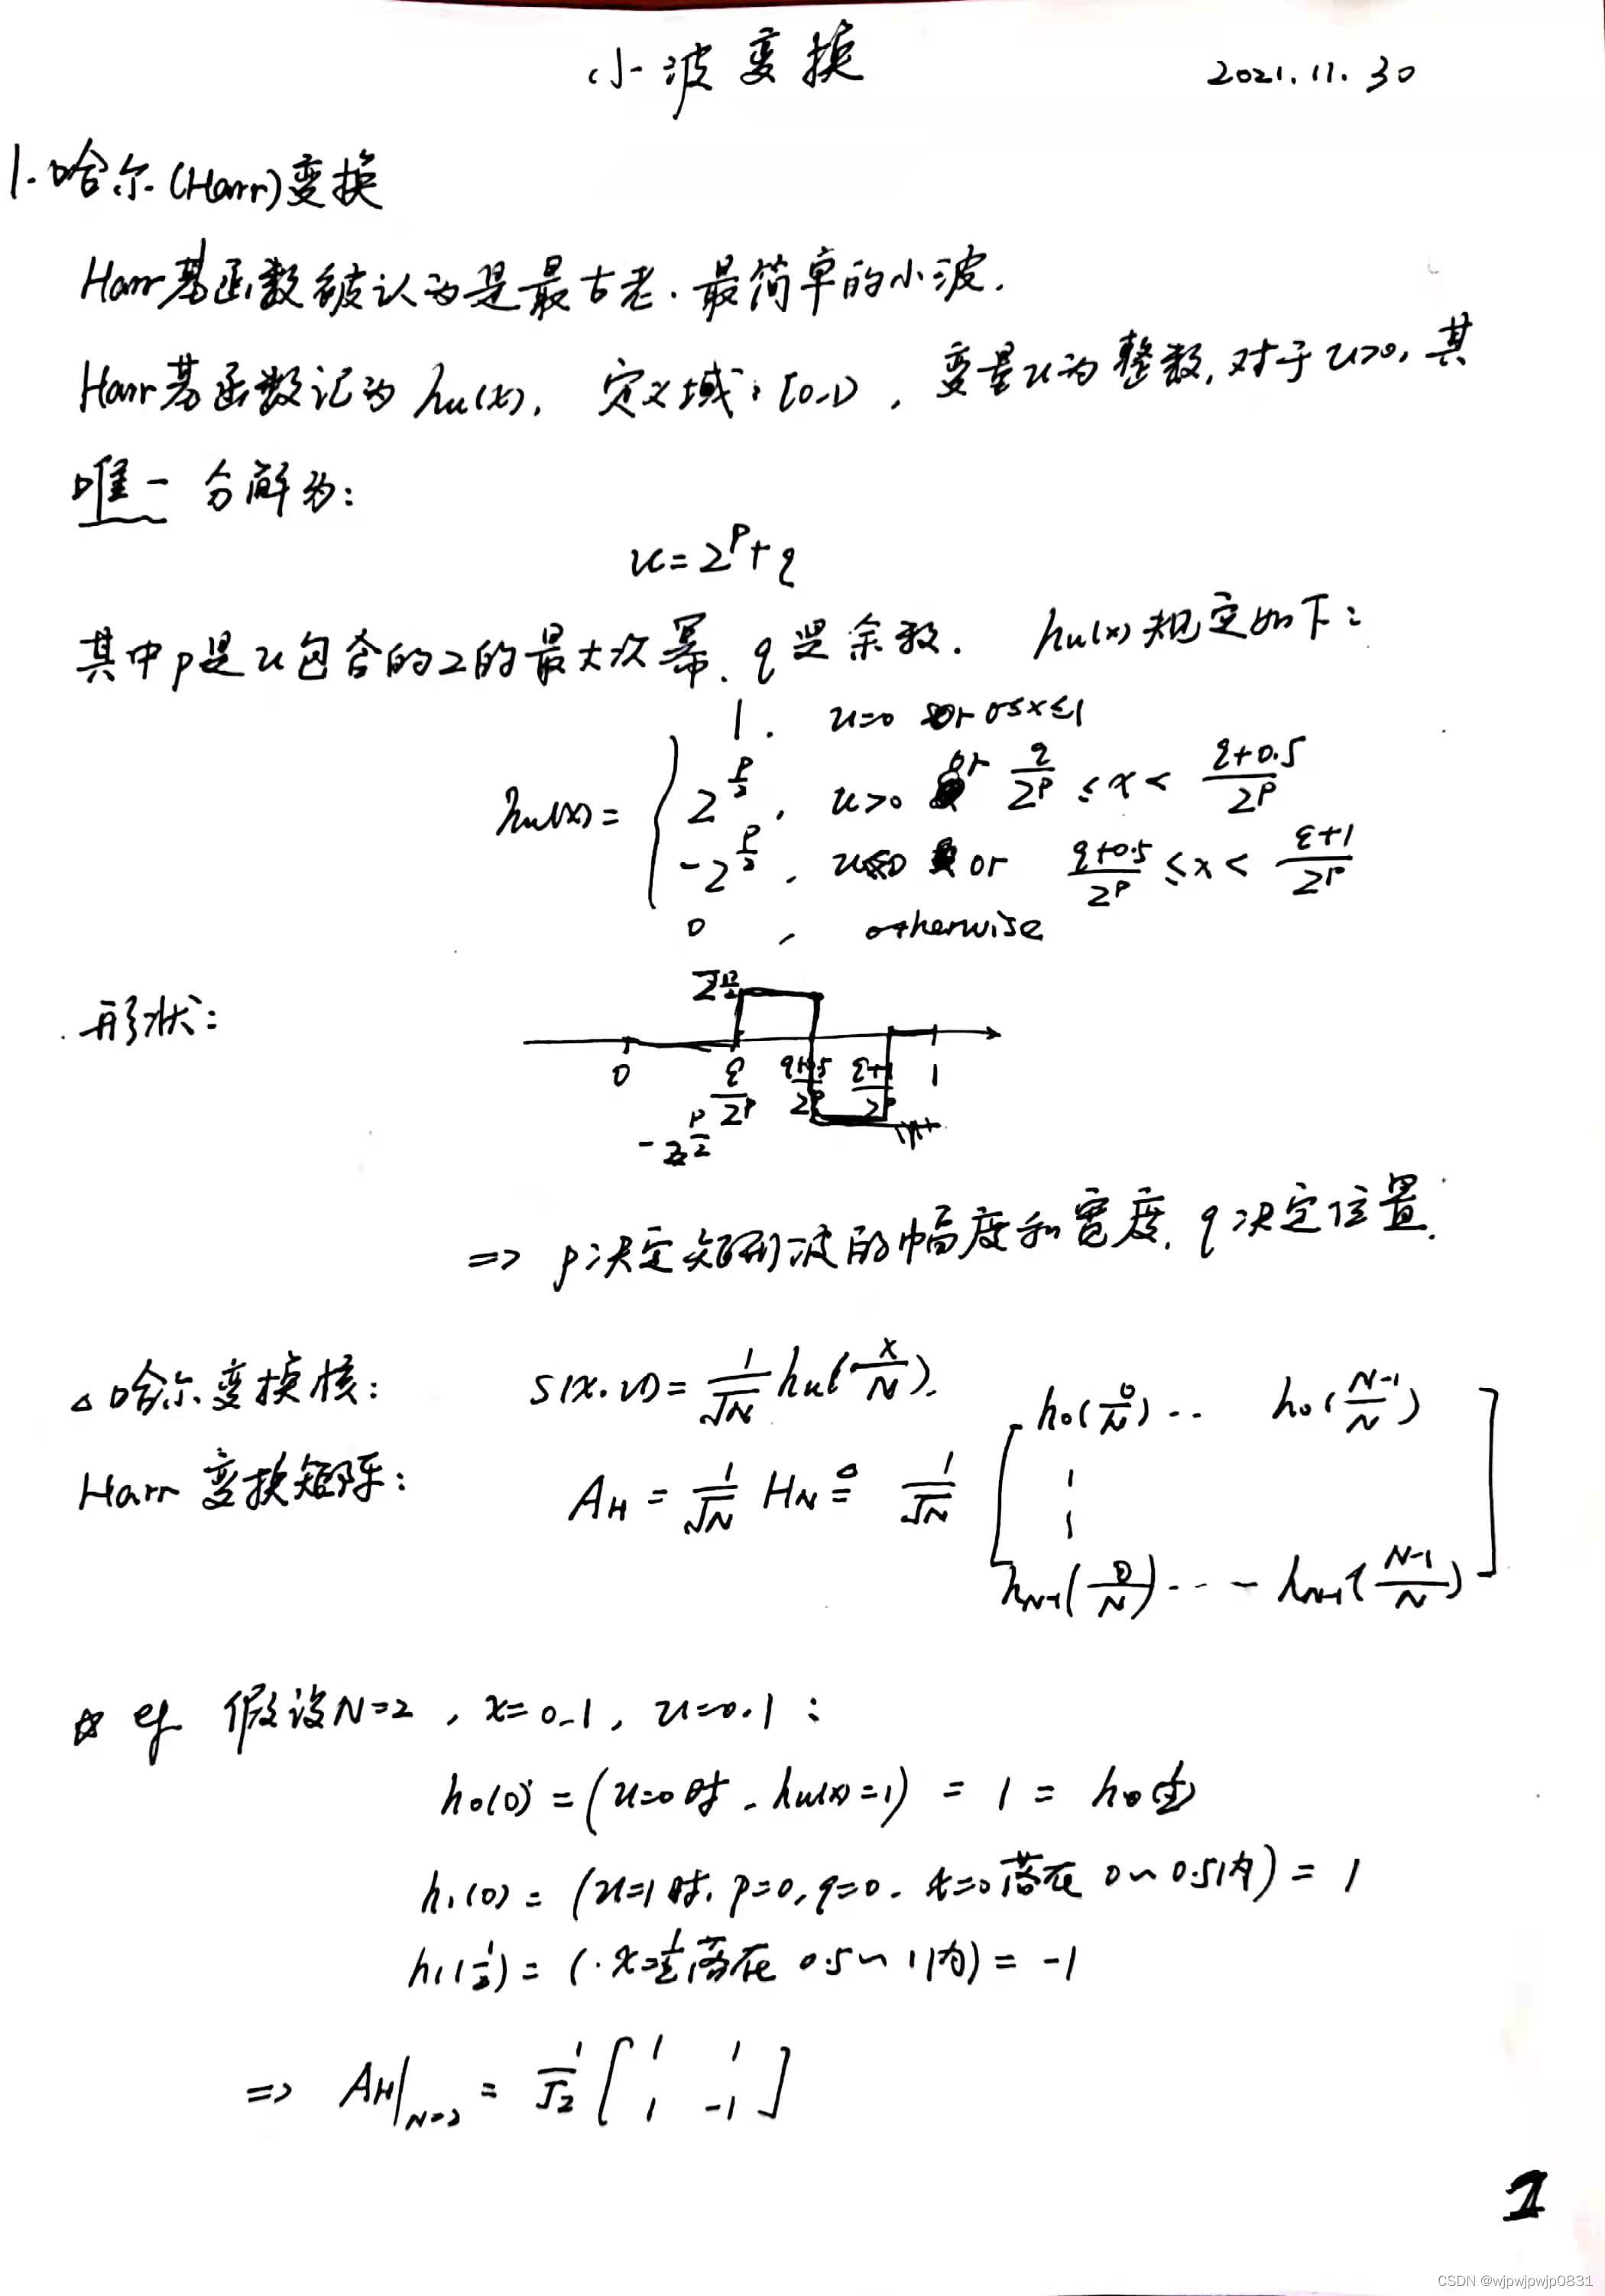 小波变换 2021.11.30
1.哈尔(Harr)变换
Harr基函数被认为是最古老.最简单的小波.
Harr基函数记为 hu(x), 定义域:[0,1), 变量u为整数,对于u>0,其
唯一分解为:
u=2^p+q
其中p是u包含的2的最大次幂,q是余数. hu(x)规定如下:
1, u=0 or 0≤x≤1
hu(x)= { 2^{p/2}, u>0 or q/2^p ≤x< (q+0.5)/2^p
-2^{p/2}, or (q+0.5)/2^p ≤x< (q+1)/2^p
0, otherwise
形状:
2^{p/2}
0 q/2^p (q+0.5)/2^p (q+1)/2^p 1
-2^{p/2}
=> p决定矩形波的幅度和宽度,q决定位置.
△哈尔变换核: s(x.u)= 1/√N hu(x/N).
Harr 变换矩阵: A_H = 1/√N H_N ≜ 1/√N [ h0(0/N) .. h0((N-1)/N)
h_{N-1}(0/N) ... h_{N-1}((N-1)/N) ]
☆ eg 假设N=2, x=0.1, u=0.1:
h0(0)=(u=0时.hu(x)=1) = 1 = h0(1/2)
h1(0)=(u=1时,p=0,q=0.x=0落在0~0.5内)=1
h1(1/2)=(.x=1/2落在0.5~1内)=-1
=> A_H|_{N=2} = 1/√2 [ 1 1
1 -1 ]
1
CSDN @wjpwjpwjp0831